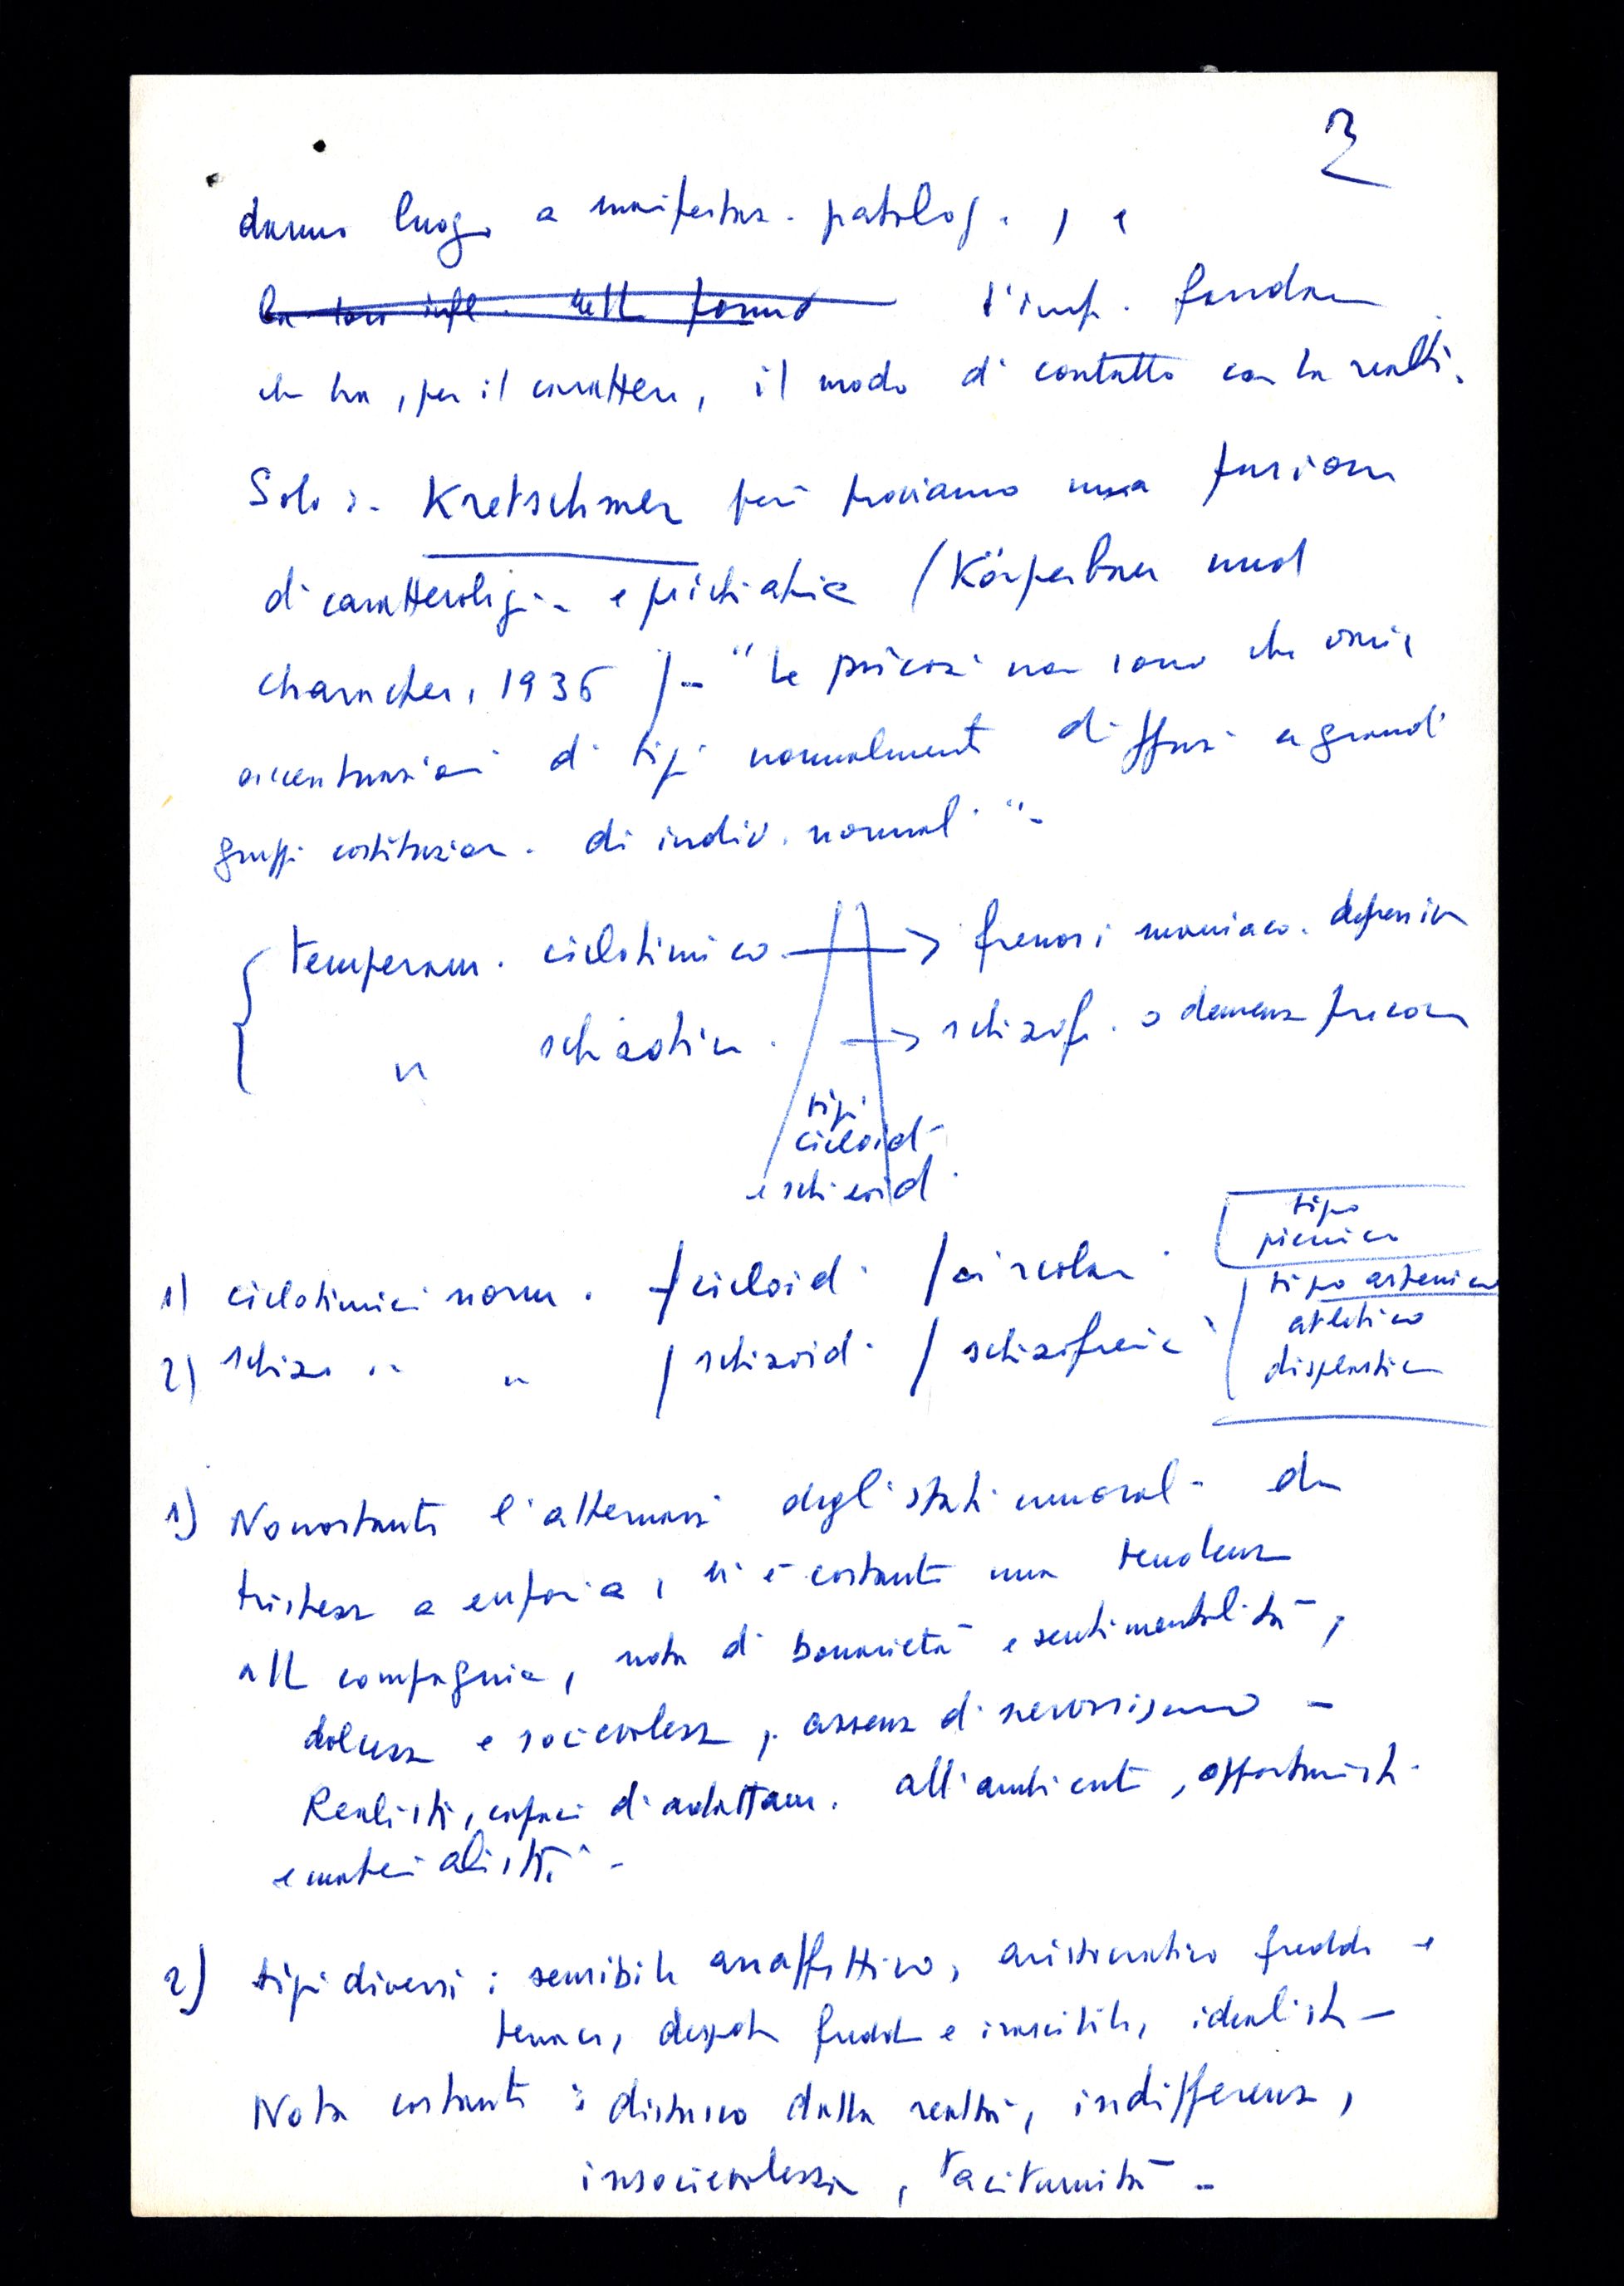 3
danno luogo a manifestaz. patolog., e
la loro infl. nella forma l'imp. fondam
che ha, per il carattere, il modo di contatto con la realtà.
Solo in Kretschmer però troviamo una fusione
di caratterologia e psichiatria (Körperbau und
Character, 1936) - "Le psicosi non sono che
accentuazioni di tipi normalmente diffusi a grandi
gruppi costituzion. di indiv. normali" -
temperam. ciclotimico → frenosi maniaco. depressiva
" schizotim. → schizofr. o demenza precoce
tipi
cicloidi
e schizoidi
tipo
picnico
1) ciclotimici norm. / cicloidi / circolari
tipo astenico
atletico
2) schizo .. " / schizoidi / schizofrenici
displastico
1) Nonostante l'alternarsi degli stati umorali da
tristezza a euforia, vi è costante una tendenza
alla compagnia, nota di bonarietà e sentimentalità,
dolcezza e socievolezza, assenza di nervosismo -
Realisti, capaci di adattam. all'ambiente, opportunisti
e materialisti -
2) tipi diversi: sensibile anaffettivo, aristocratico freddo e
tenace, despota freddo e irascibile, idealista -
Nota costante: distacco dalla realtà, indifferenza,
insocievolezza, taciturnità -